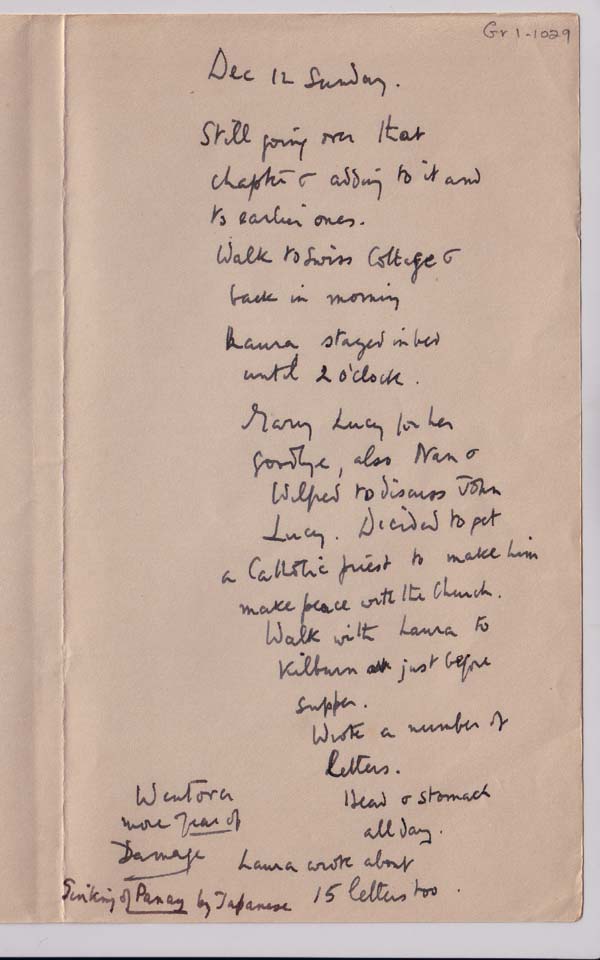 Gr 1-1029
Dec 12 Sunday.
Still going over that
chapter & adding to it and
to earlier ones.
Walk to Swiss Cottage &
back in morning
Laura stayed in bed
until 2 o'clock.
Mary Lucy for her
goodbye, also Nan &
Wilfred to discuss John
Lucy. Decided to get
a Catholic priest to make him
make peace with the Church.
Walk with Laura to
Kilburn just before
supper.
Wrote a number of
letters.
Head & stomach
all day.
Went over
more of
Damage
Laura wrote about
15 letters too.
Sinking of Panay by Japanese